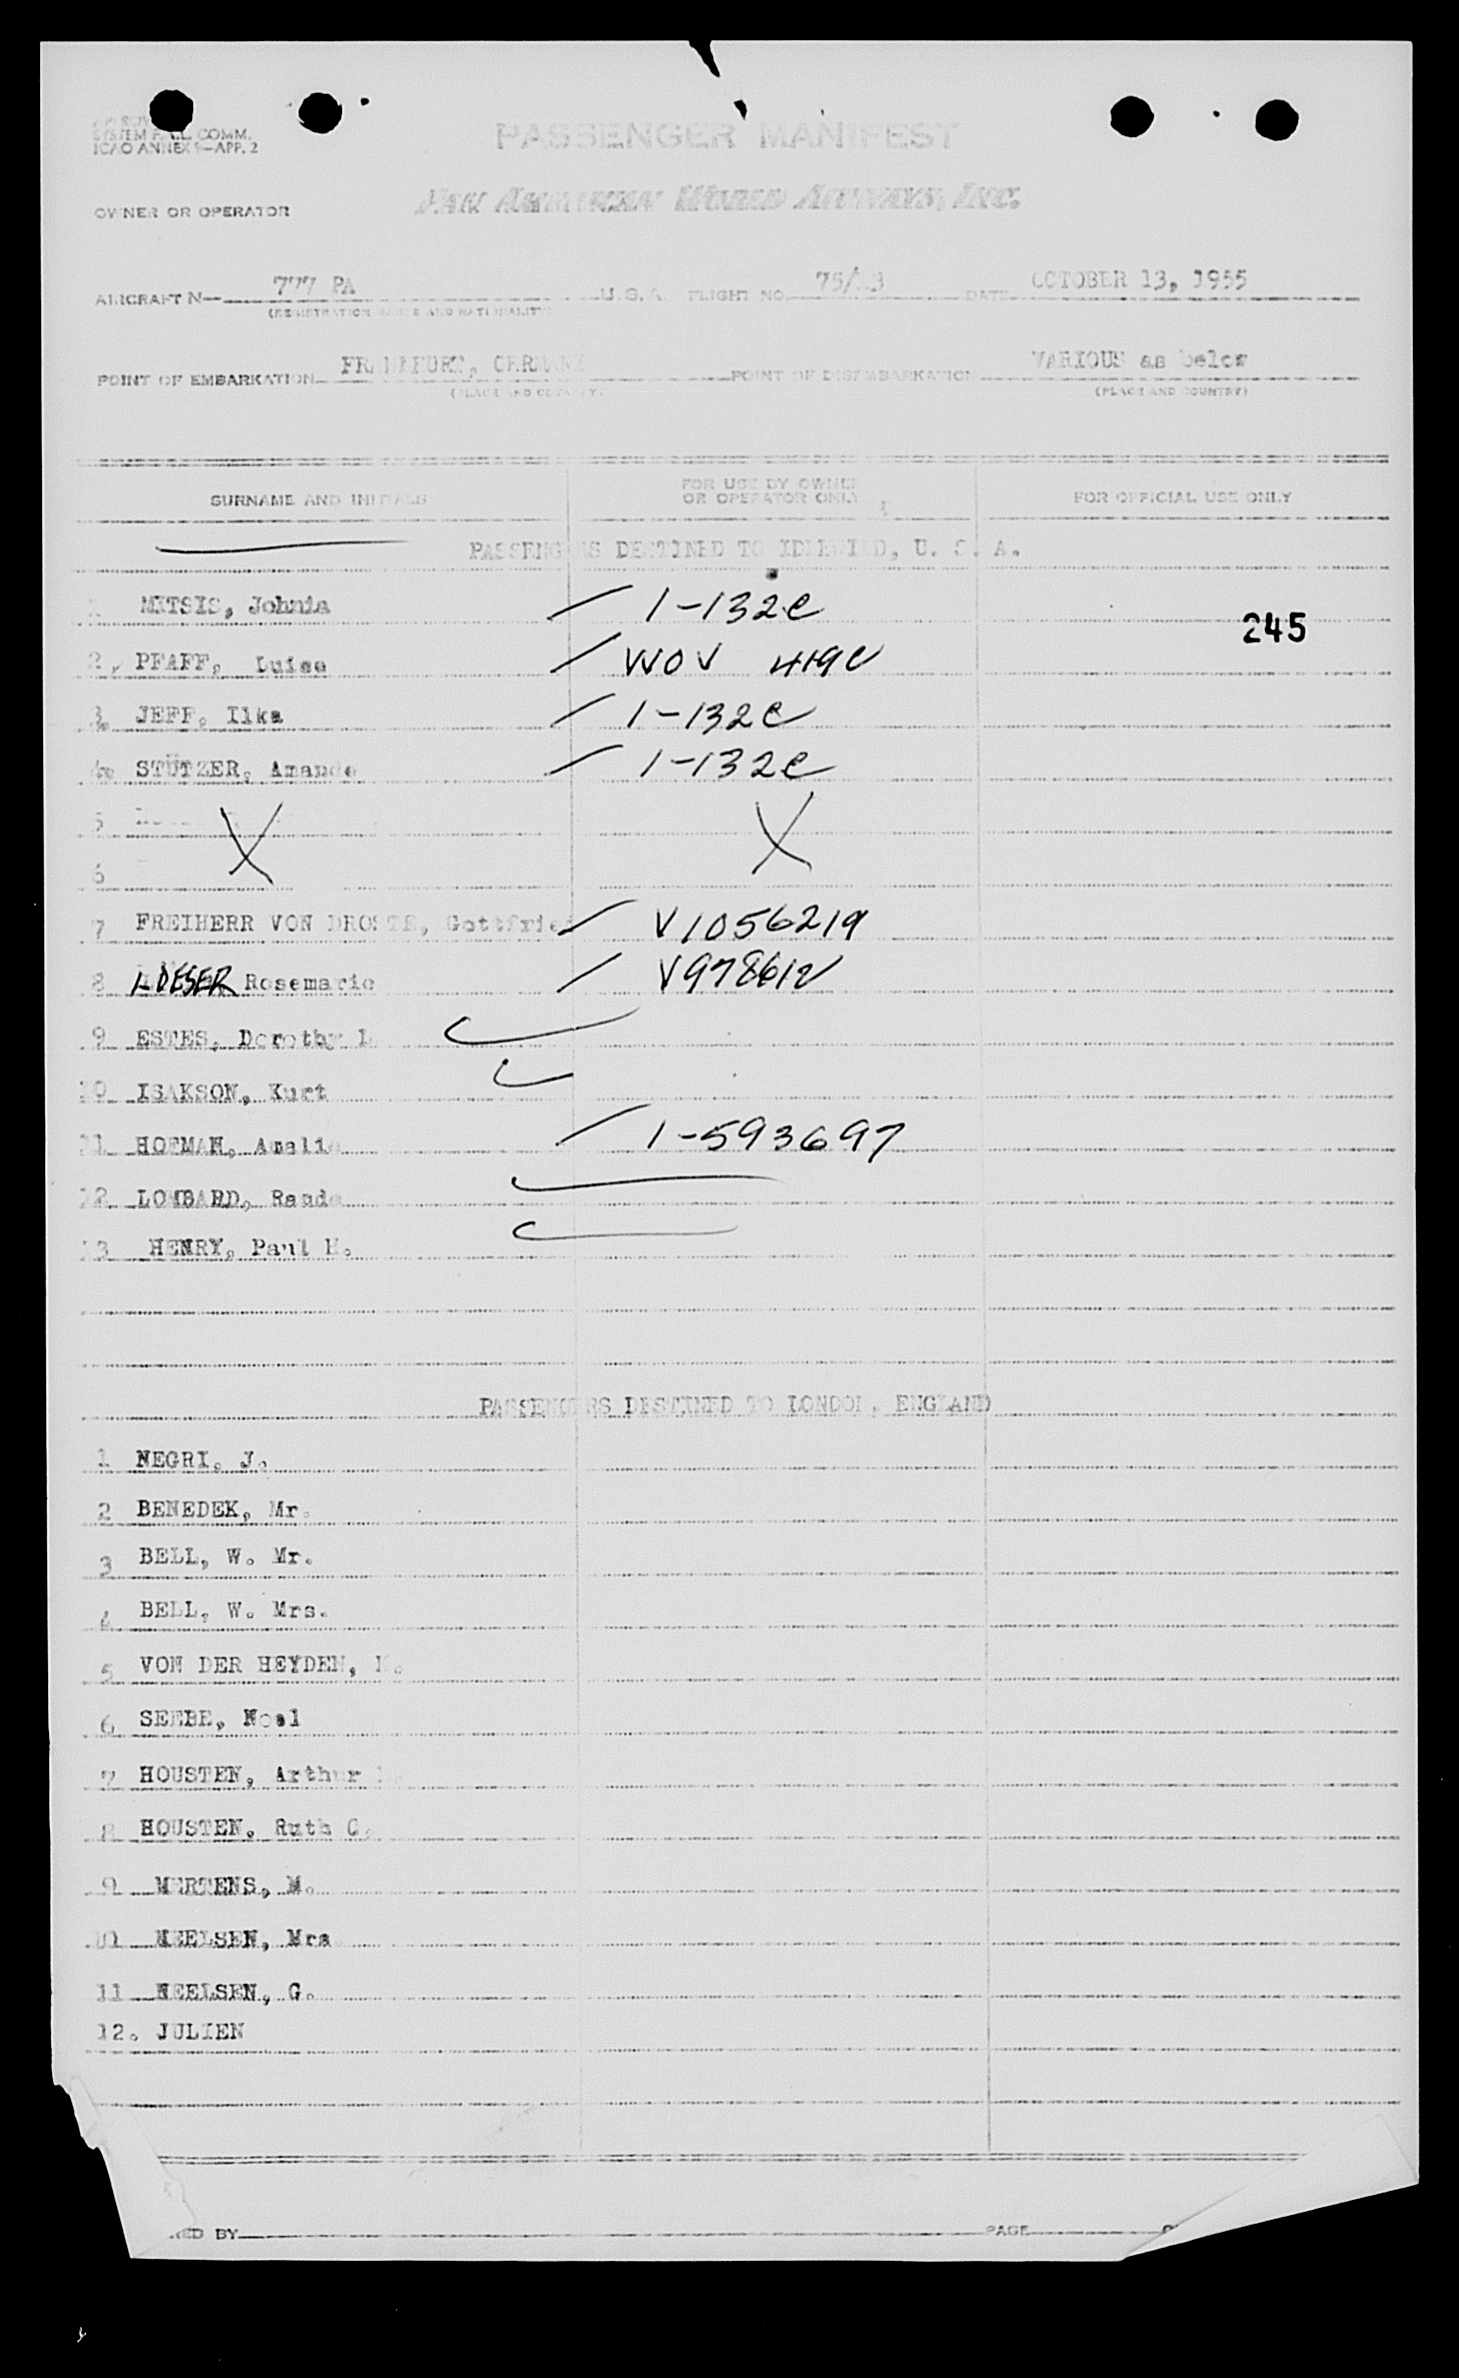 SYSTEM COMM.
ICAO ANNEX 9—APP. 2
PASSENGER MANIFEST
OWNER OR OPERATOR
PAN AMERICAN WORLD AIRWAYS, INC.
AIRCRAFT N— 777 PA U.S.A. FLIGHT NO. DATE OCTOBER 13, 1955
(REGISTRATION MARKS AND NATIONALITY)
POINT OF EMBARKATION FRANKFURT, GERMANY POINT OF DISEMBARKATION VARIOUS as below
(PLACE AND COUNTRY) (PLACE AND COUNTRY)
SURNAME AND INITIALS FOR USE BY OWNER OR OPERATOR ONLY FOR OFFICIAL USE ONLY
PASSENGERS DESTINED TO IDLEWILD, U. S. A.
1 MITSIS, Johnia 1-132c
245
2. PFAFF, Luise WOV 419c
3. JEFF, Ilka 1-132c
4. STÜTZER, Amanda 1-132c
5 X X
6
7 FREIHERR VON DROSTE, Gottfried V1056219
8 LOESER Rosemarie V978612
9 ESTES, Dorothy L
10 ISAKSON, Kurt
11 HOFMAN, Amalie 1-593697
12 LOMBARD, Randa
13 HENRY, Paul H.
PASSENGERS DESTINED TO LONDON, ENGLAND
1 NEGRI, J.
2 BENEDEK, Mr.
3 BELL, W. Mr.
4 BELL, W. Mrs.
5 VON DER HEYDEN,
6 SEEBE, Noel
7 HOUSTEN, Arthur
8 HOUSTEN, Ruth C.
9 MERTENS, M.
10 NEELSEN, Mrs
11 NEELSEN, G.
12. JULIEN
BY PAGE